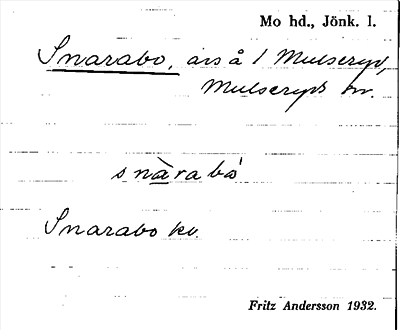 Mo hd., Jönk. l.
Snarabo, avs å / Mulseryd,
Mulseryds sn.
snàrabó
Snarabo kv.
Fritz Andersson 1932.